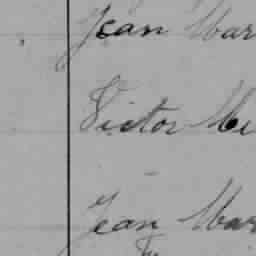 Jean Mar
Victor Me
Jean Mar